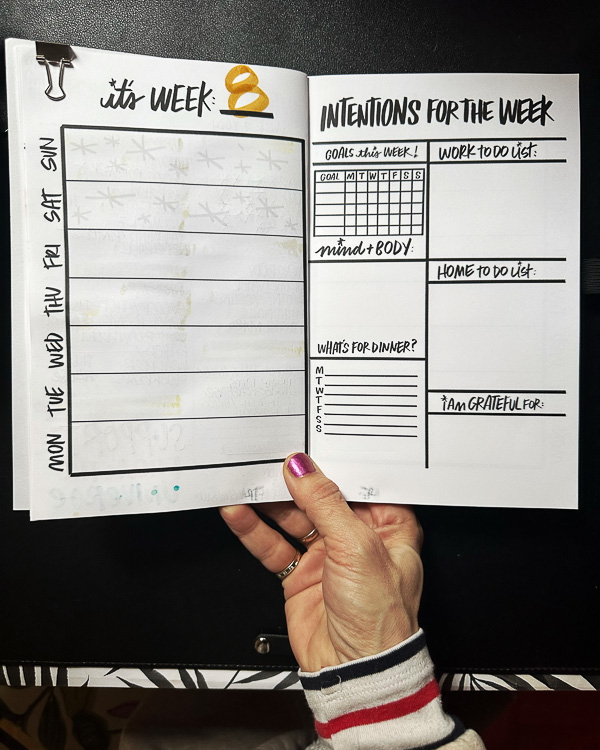 it's WEEK: 8
SUN
SAT
FRI
THU
WED
TUE
MON
INTENTIONS FOR THE WEEK
GOALS this WEEK!
GOAL M T W T F S S
mind + BODY:
WHAT'S FOR DINNER?
M
T
W
T
F
S
S
WORK TO DO LIST:
HOME TO DO LIST:
I AM GRATEFUL FOR: